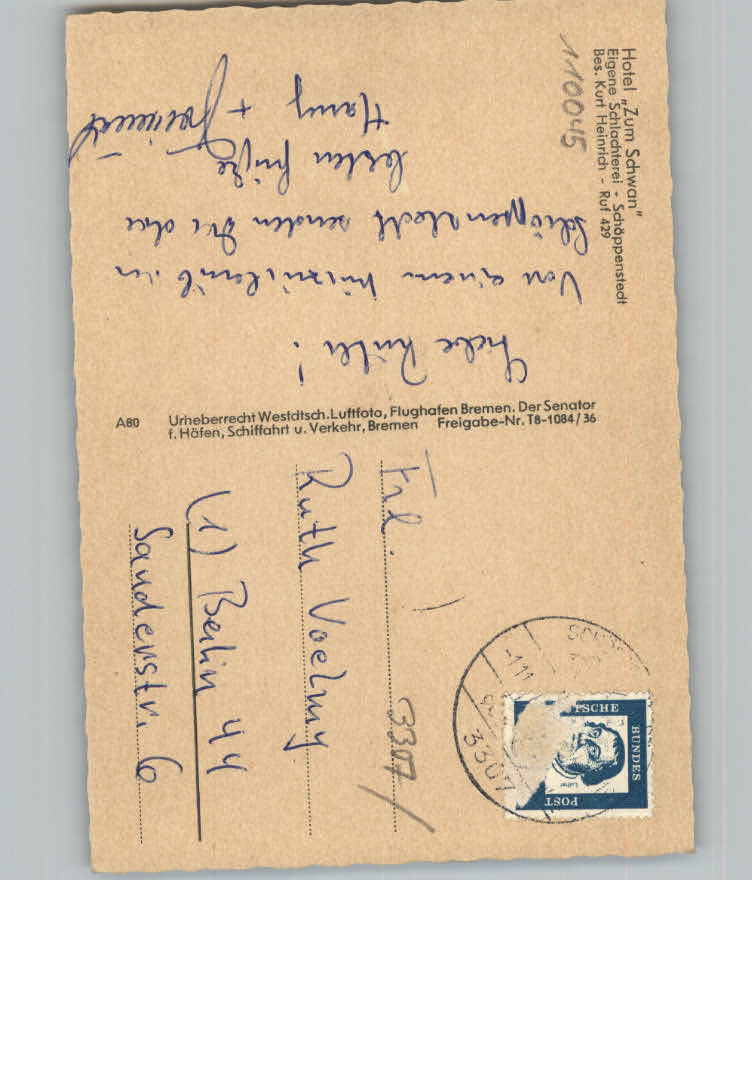 Hotel „Zum Schwan"
Eigene Schlachterei - Schöppenstedt
Bes. Kurt Heinrich - Ruf 429
110045
Liebe Ruth!
Von einem Kurzurlaub in
Schöppenstedt senden Dir die
besten Grüße
Hans +
A80 Urheberrecht Westdtsch. Luftfoto, Flughafen Bremen. Der Senator
f. Häfen, Schiffahrt u. Verkehr, Bremen Freigabe-Nr. T8-1084/36
Frl.
Ruth Voelmy
(1) Berlin 44
Sanderstr. 6
3307/
3307
TSCHE
BUNDES
POST
Luther